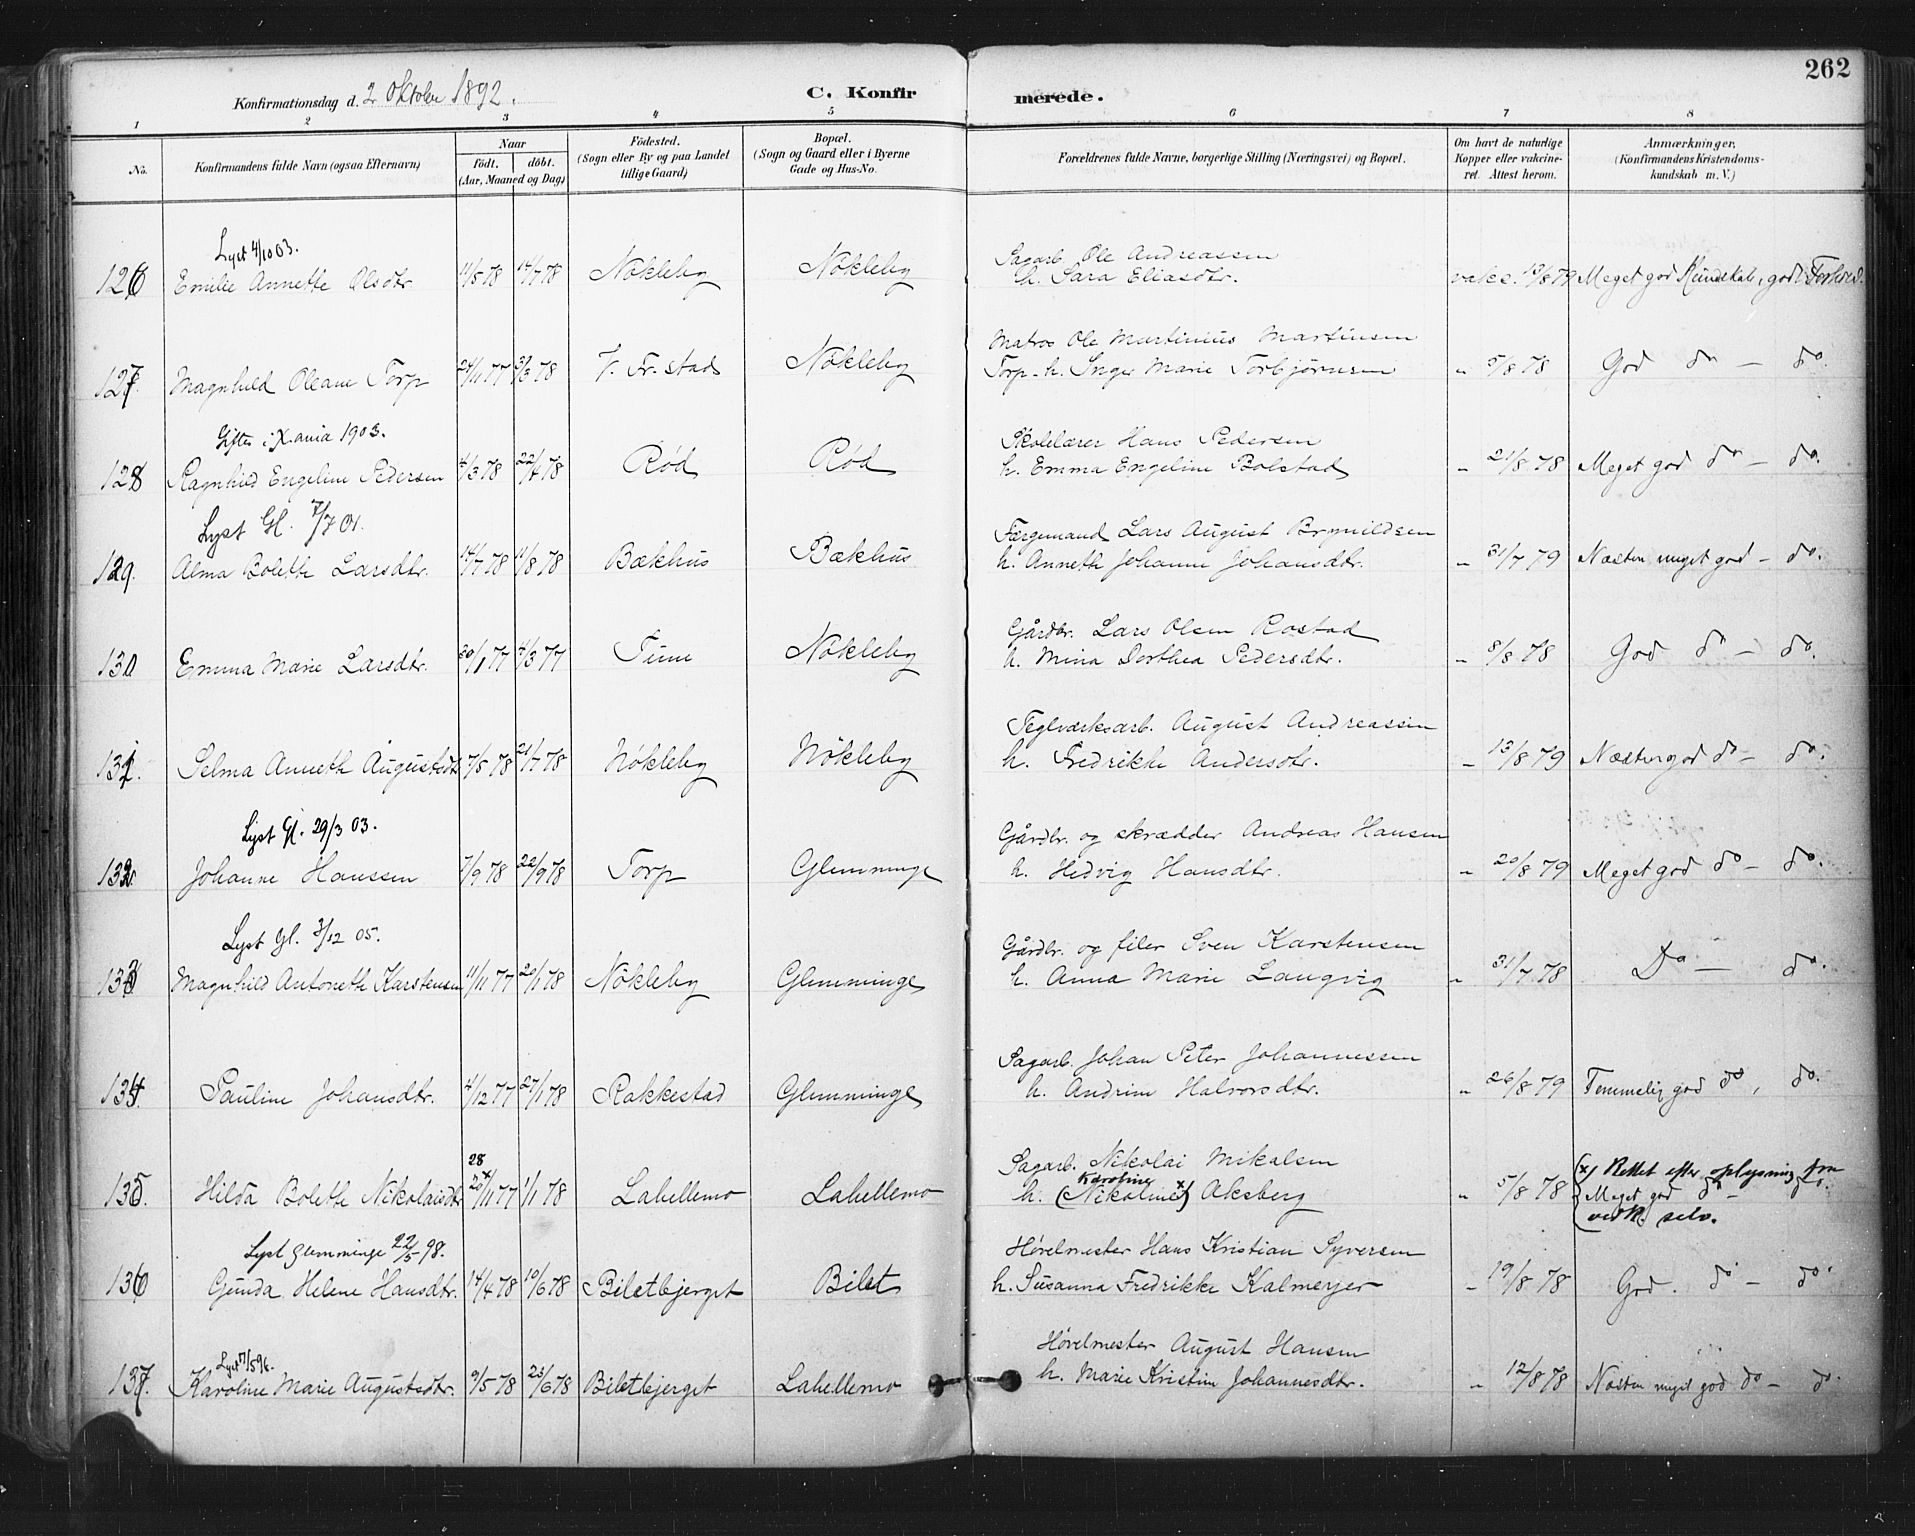 262
Konfirmationsdag d. 2 Oktober 1892.
C. Konfirmerede.
1 2 3 4 5 6 7 8
No. Konfirmandens fulde Navn (ogsaa Efternavn) Naar födt. döbt. (Aar, Maaned og Dag) Födested. (Sogn eller By og paa Landet tillige Gaard) Bopæl. (Sogn og Gaard eller i Byerne Gade og Hus-No. Forældrenes fulde Navne, borgerlige Stilling (Næringsvei) og Bopæl. Om havt de naturlige Kopper eller vakcineret. Attest herom. Anmærkninger. (Konfirmandens Kristendomskundskab m. V.)
Lyst 4/10 03.
Sagarb. Ole Andreassen
126 Emilie Annette Olsdtr 11/5 78 14/7 78 Nökleby Nökleby h. Sara Eliasdtr. vakc. 13/8 79 Meget god Kundskab, god Forhold.
Matros Ole Martinius Martinsen
127. Magnhild Oleane Torp 24/11 77 3/3 78 V. Fr.stad Nökleby Torp - h. Inger Marie Torbjørnsen " 5/8 78 God do — do.
Giftes i X.ania 1903.
Skolelærer Hans Pedersen
128 Ragnhild Engeline Pedersen 4/3 78 22/4 78 Rød Rød h. Emma Engeline Bolstad " 21/8 78 Meget god do — do.
Lyst Gl. 7/7 01.
Færgemand Lars August Brynildsen
129. Alma Bolette Larsdtr. 14/7 78 11/8 78 Bækhus Bækhus h. Anneth Johanne Johansdtr. " 31/7 79 Næsten meget god — do.
Gårdbr. Lars Olsen Rostad
130 Emma Marie Larsdtr. 30/1 77 4/3 77 Tune Nökleby h. Mina Dorthea Pedersdtr. " 8/8 78 God do — do.
Teglværksarb. August Andreassen
131. Selma Anneth Augustsdtr 7/5 78 21/7 78 Nökleby Nökleby h. Fredrikke Andersdtr. " 13/8 79 Næsten god do — do.
Lyst Gl. 29/3 03.
Gårdbr. og skrædder Andreas Hansen
132. Johanne Hanssen 7/9 78 22/9 78 Torp Glemminge h. Hedvig Hansdtr. " 20/8 79 Meget god do — do.
Lyst Gl. 3/12 05.
Gårdbr. og filer Sven Karstensen
133 Magnhild Antoneth Karstensen 11/11 77 20/1 78 Nökleby Glemminge h. Anna Marie Langvig " 31/7 78 Do — do.
Sagarb. Johan Peter Johannessen
134. Pauline Johansdtr. 4/12 77 27/1 78 Rakkestad Glemminge h. Andrine Halvorsdtr. " 26/8 79 Temmelig god do, do.
28
Sagarb. Nikolai Mikalsen (x) Rettet efter oplysning fra
Karoline
135. Hilda Bolette Nikolaisdtr 20x/11 77 1/1 78 Lahellemo Lahellemo h. (Nikoline x) Aksberg " 5/8 78 Meget god do — do.
vedk. selv.
Lyst Glemminge 22/5 98.
Høvelmester Hans Kristian Syversen
136 Gunda Helene Hansdtr. 14/4 78 10/6 78 Biletbjerget Bilet h. Susanna Fredrikke Kalmeyer " 19/8 78 God. do — do.
Lyst 17/5 96.
Høvelmester August Hansen
137. Karoline Marie Augustsdtr. 9/5 78 23/6 78 Biletbjerget Lahellemo h. Marie Kristine Johannesdtr. " 12/8 78 Næsten meget god do — do.